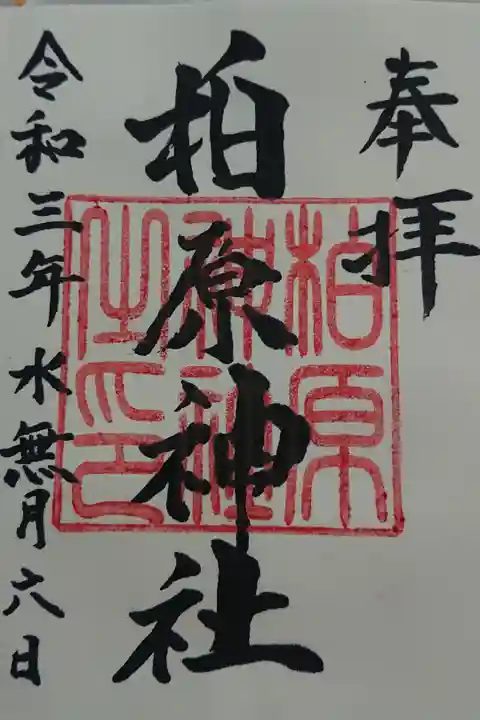 奉拝
柏原神社
令和三年水無月六日
柏原
神社
之印